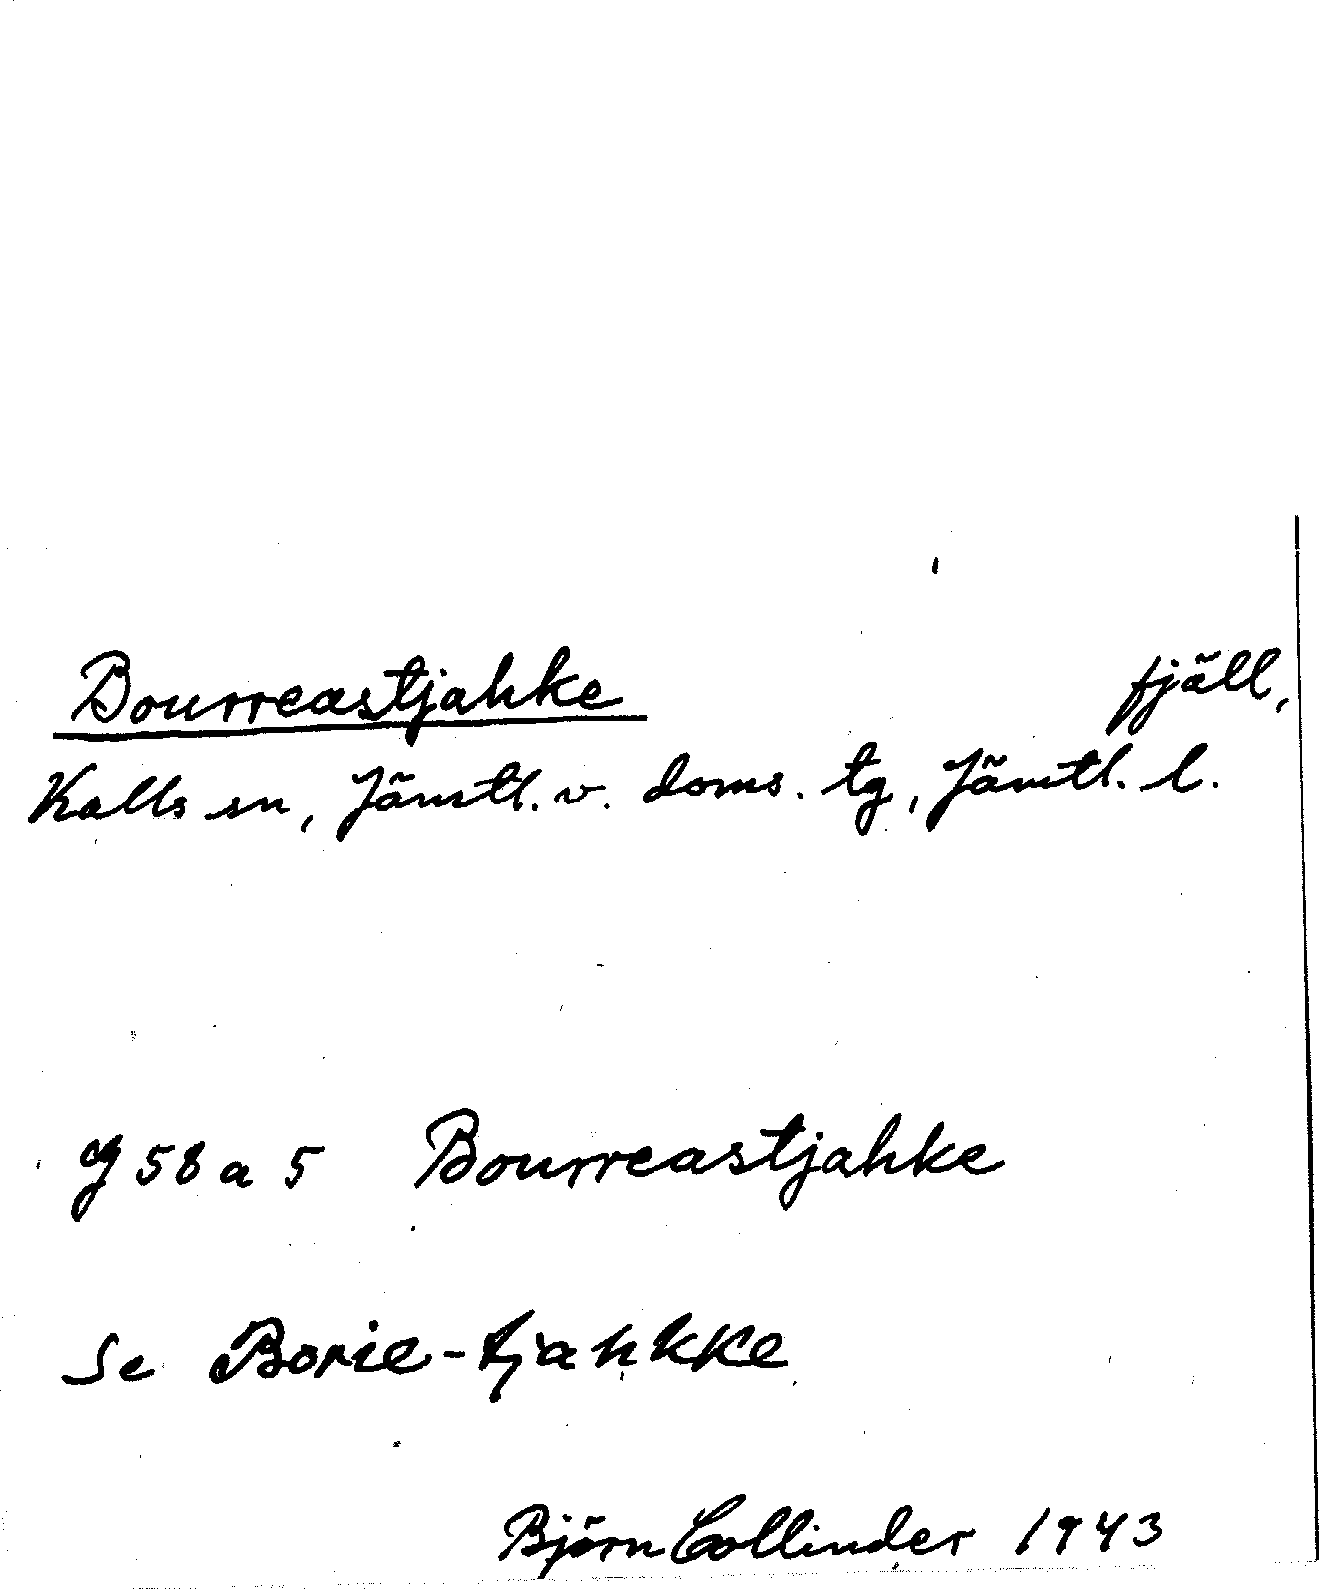 Bourreastjahke fjäll,
Kalls sn, Jämtl. v. doms. tg, Jämtl. l.
g 58 a 5 Bourreastjahke
Se Borie-tjahkke
Björn Collinder 1943